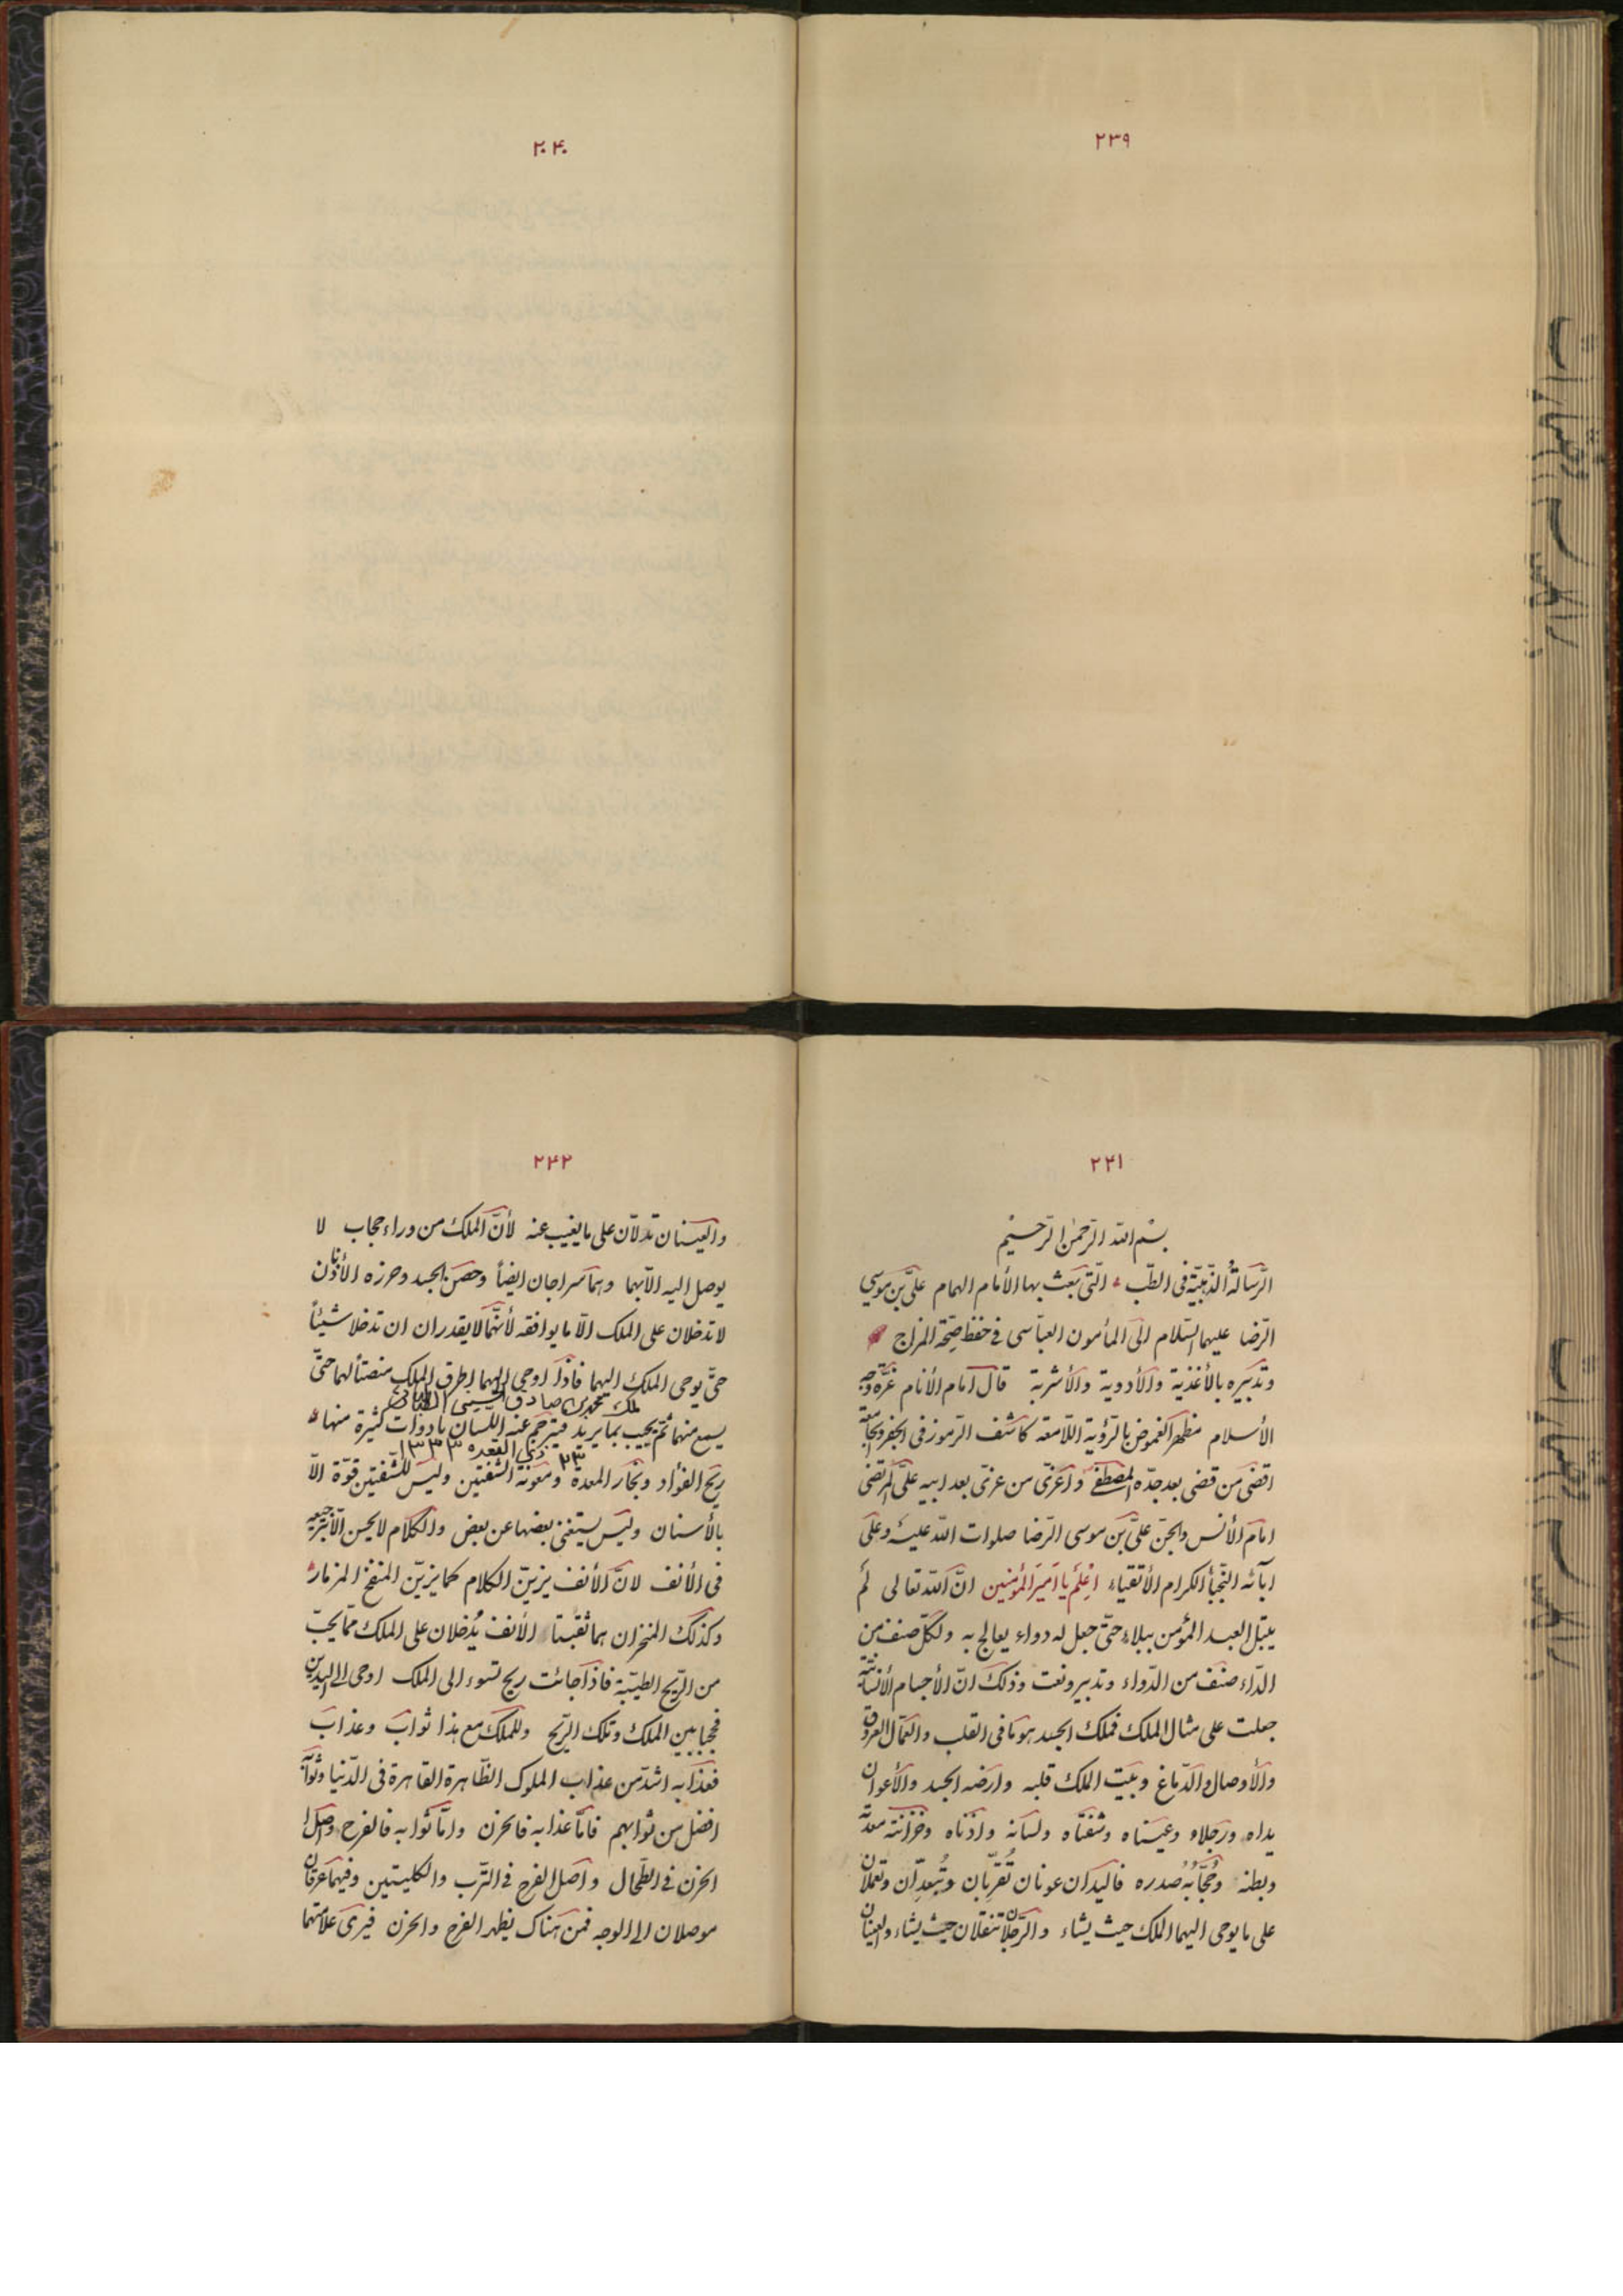 ۲۳۹
۲۰۴۰
۲۴۱
بسم الله الرّحمن الرّحيم
الرّسالةُ الذّهبيّة في الطّب التّي بَعث بها الأمام الهمام عليّ بن موسي
الرّضا عليهما السّلام الى المأمون العبّاسى في حفظ صِحّة المزاج
وتدبيره بالأغذية والأدوية والأشربة قال امام الأنام غرّة وجه
الأسلام مظهر الغموض بالرّؤية اللّامعة كاشف الرّموز في الجفر والجامعة
اقضى من قضى بعد جدّه المصطفى واغزى من غزى بعد ابيه علىّ المرتضى
امام الأنس والجنّ علىّ بن موسى الرّضا صلوات الله عليه وعلى
ابائه النّجبأ الكرام الأتقياء اِعلم يا امير المؤمنين انّ الله تعالى لم
يبتل العبد المؤمن ببلاء حتّى جعل له دواء يعالج به ولكلّ صنف من
الدّاء صنف من الدّواء وتدبير ونعت وذلك انّ الأجسام الأنسانيّة
جعلت على مثال الملك فملك الجسد هو ما فى القلب والعمّال العروق
والأوصال والدّماغ وبيت الملك قلبه وارضه الجسد والأعوان
يداه ورجلاه وعيناه وشفتاه ولسانه واذناه وخزانته معدته
وبطنه وحُجّابُهُ صدره فاليدان عونان تُقرّبان وتُبعدّان وتعملان
على ما يوحى اليهما الملك حيث يشاء والرّجلان تنقلان حيث يشاء والعينان
۲۴۲
والعينان تدلّان على ما يغيب عنه لأنّ الملك من وراء حجاب لا
يوصل اليه الّا بهما وهما سراجان ايضاً وحصن الجسد وحرزه الأذنان
لا تدخلان على الملك الّا ما يوافقه لأنّهما لا يقدران ان تدخلا شيئاً
حتّى يوحى الملك اليهما فاذا اوحى اليهما اطرق الملك منصتاً لهما حتّى
ملك محمد بن صادق الحسينى
يسمع منهما ثمّ يجيب بما يريد فيترجم عنه اللسان بادوات كثيرة منها
۲۳ ذي القعده ۱۳۳۳
ريح الفؤاد وبخار المعدة ومعونة الشّفتين وليس للشّفتين قوّة الّا
بالأسنان وليس يستغنى بعضها عن بعض والكلام لا يحسن الّا بترجيعه
فى الأنف لانّ الأنف يزيّن الكلام كما يزيّن المنفخ المزمار
وكذلك المنخران هما ثقبتا الأنف يُدخلان على الملك ممّا يحبّ
من الرّيح الطيّبة فاذا جائت ريح تسوء الى الملك اوحى الى اليدين
فحجبا بين الملك وتلك الرّيح وللملك مع هذا ثواب وعذاب
فعذابه اشدّ من عذاب الملوك الظّاهرة القاهرة فى الدّنيا وثوابه
افضل من ثوابهم فامّا عذابه فالحزن وامّا ثوابه فالفرح واصل
الحزن فى الطّحال واصل الفرح فى الثّرب والكليتين وفيهما عرقان
موصلان الى الوجه فمن هناك يظهر الفرح والحزن فيرى علامتهما